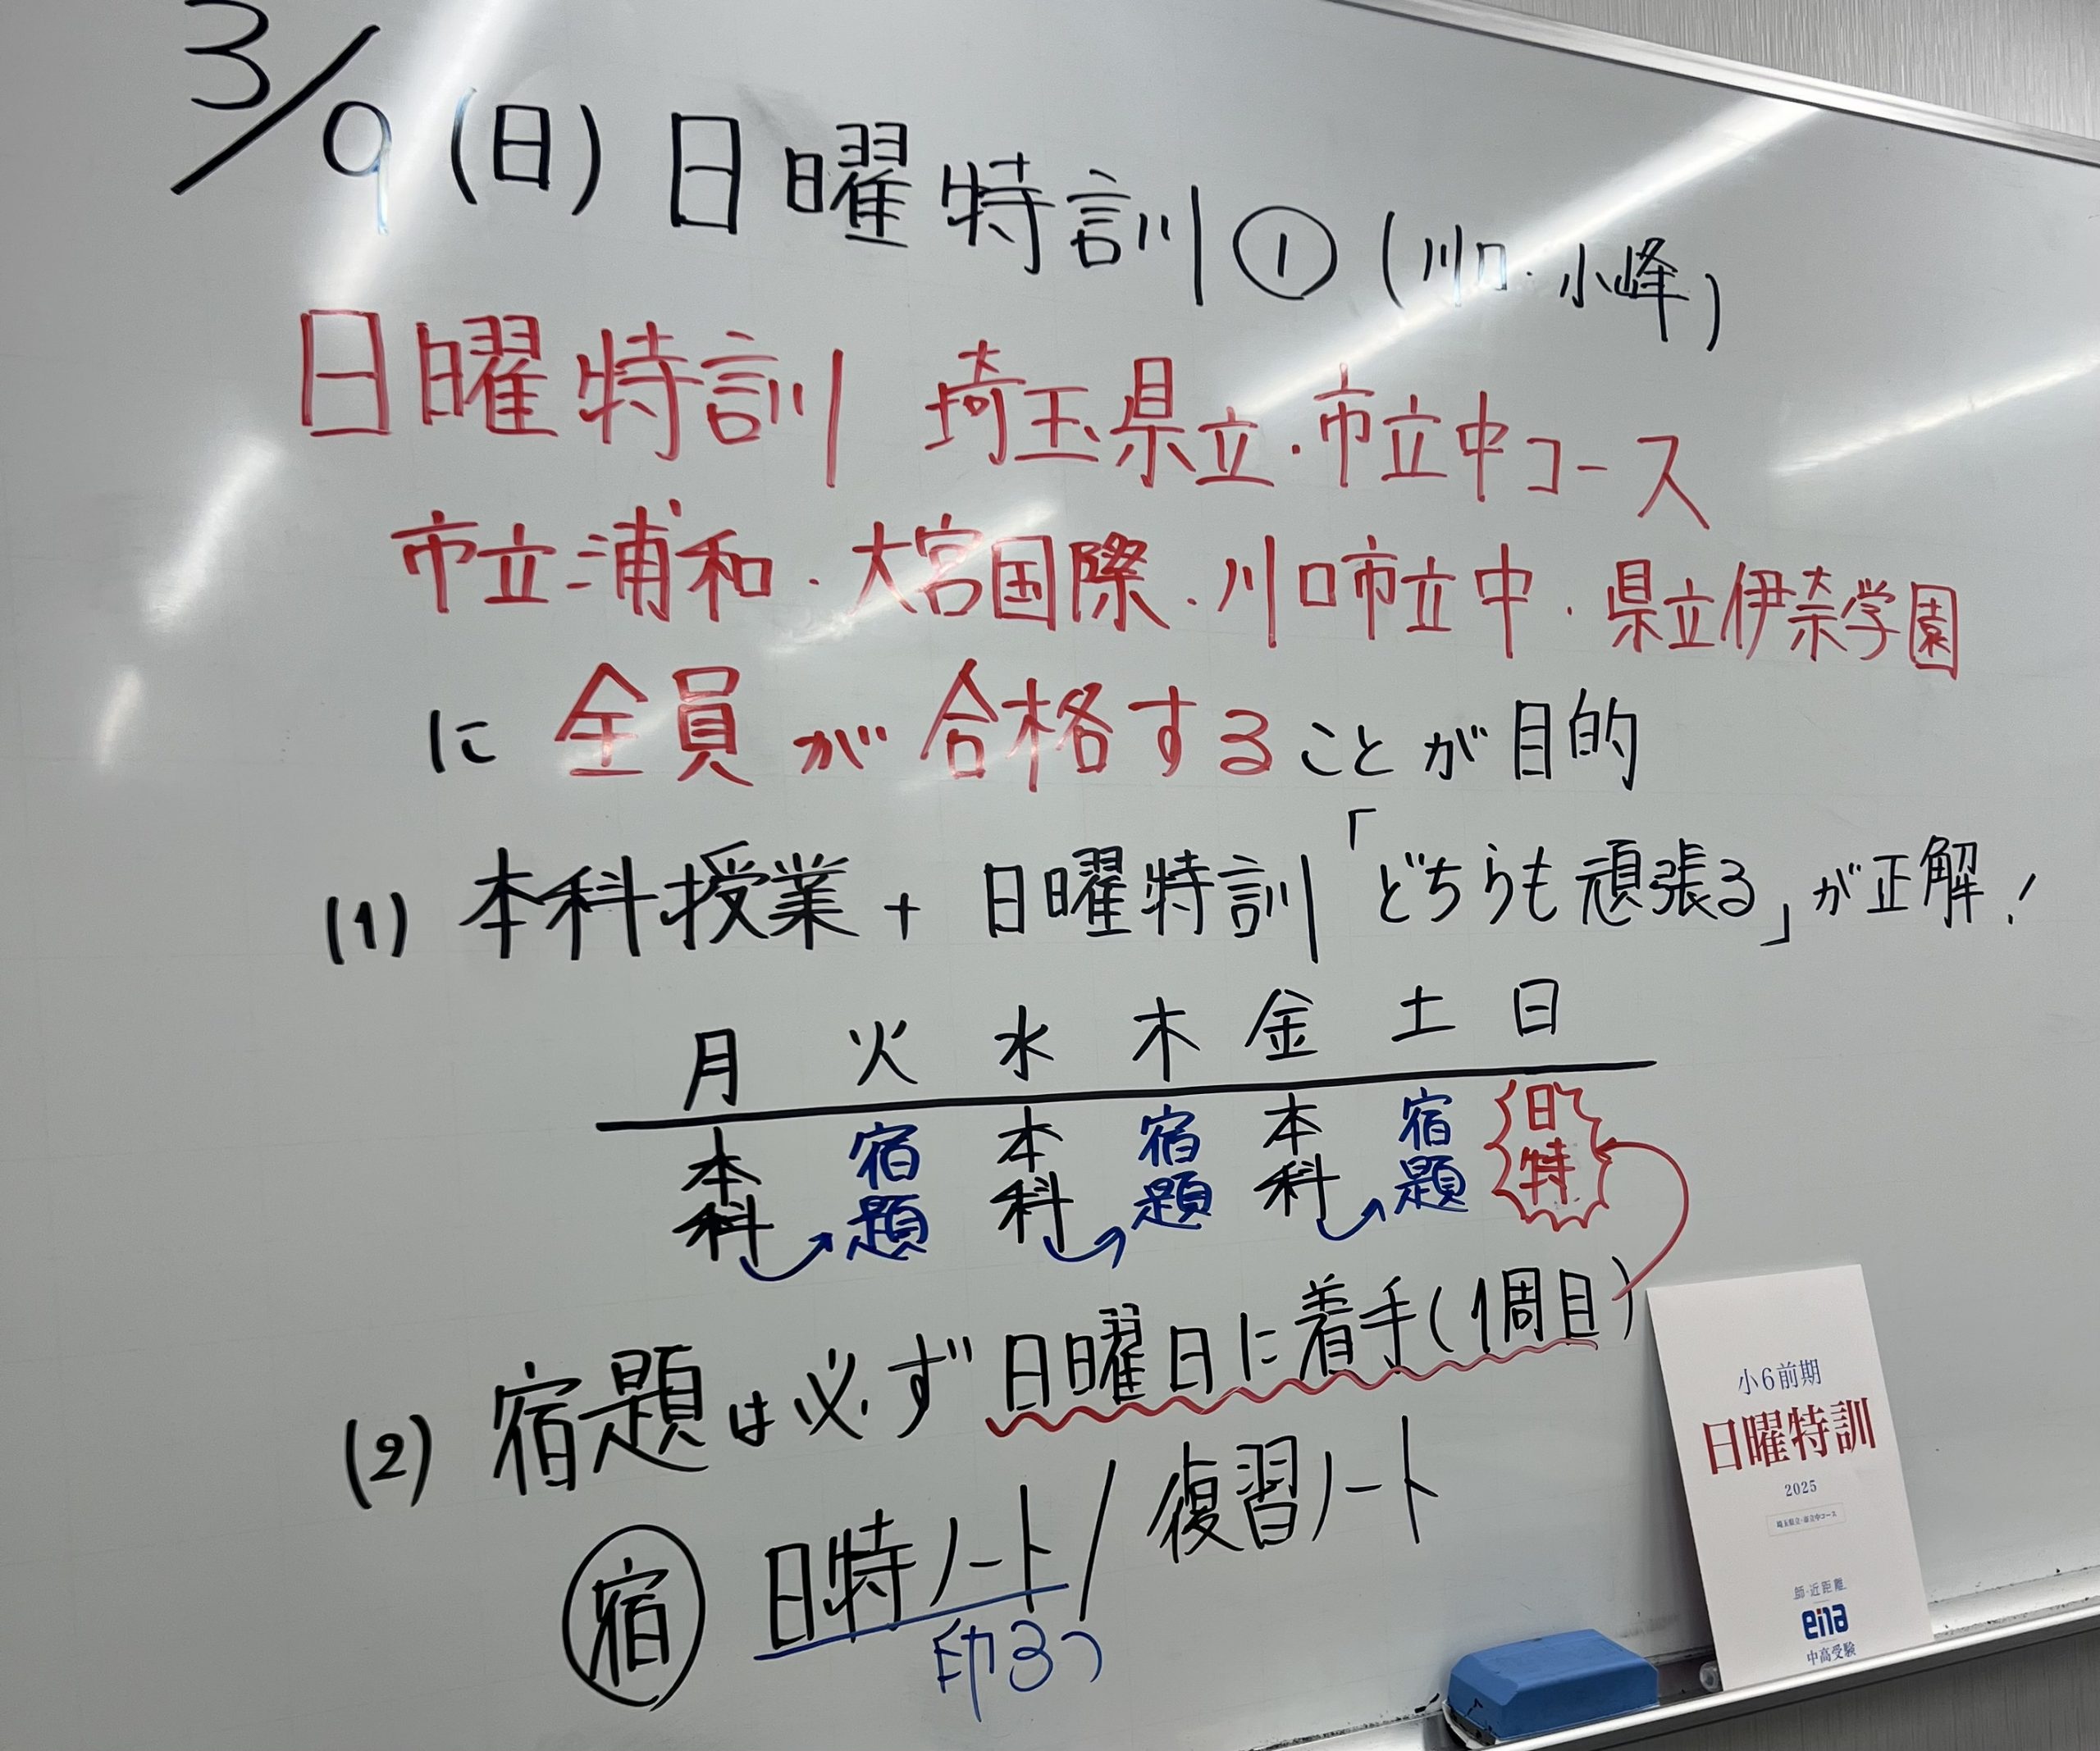 3/9(日)日曜特訓①(川口・小峰)
日曜特訓 埼玉県立・市立中コース
市立浦和・大宮国際・川口市立中・県立伊奈学園
に全員が合格することが目的
(1)本科授業+日曜特訓「どちらも頑張る」が正解!
月 火 水 木 金 土 日
本科 宿題 本科 宿題 本科 宿題 日特
(2)宿題は必ず日曜日に着手(1周目)
宿 日特ノート/復習ノート
印3つ
小6前期
日曜特訓
2025
埼玉県立・市立中コース
師・近距離
ena
中高受験